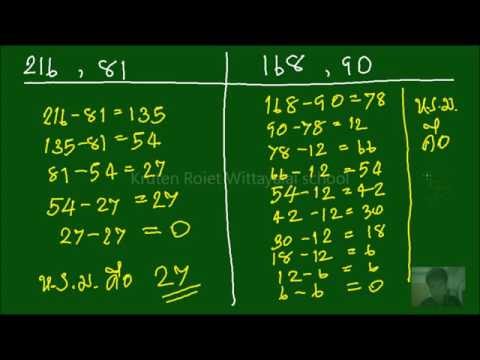 216 , 81
216-81=135
135-81=54
81-54=27
54-27=27
27-27=0
ห.ร.ม. คือ 27
168 , 90
168-90=78
90-78=12
78-12=66
66-12=54
54-12=42
42-12=30
30-12=18
18-12=6
12-6=6
6-6=0
ห.ร.ม.
คือ
Kruten Roiet Wittayalai school